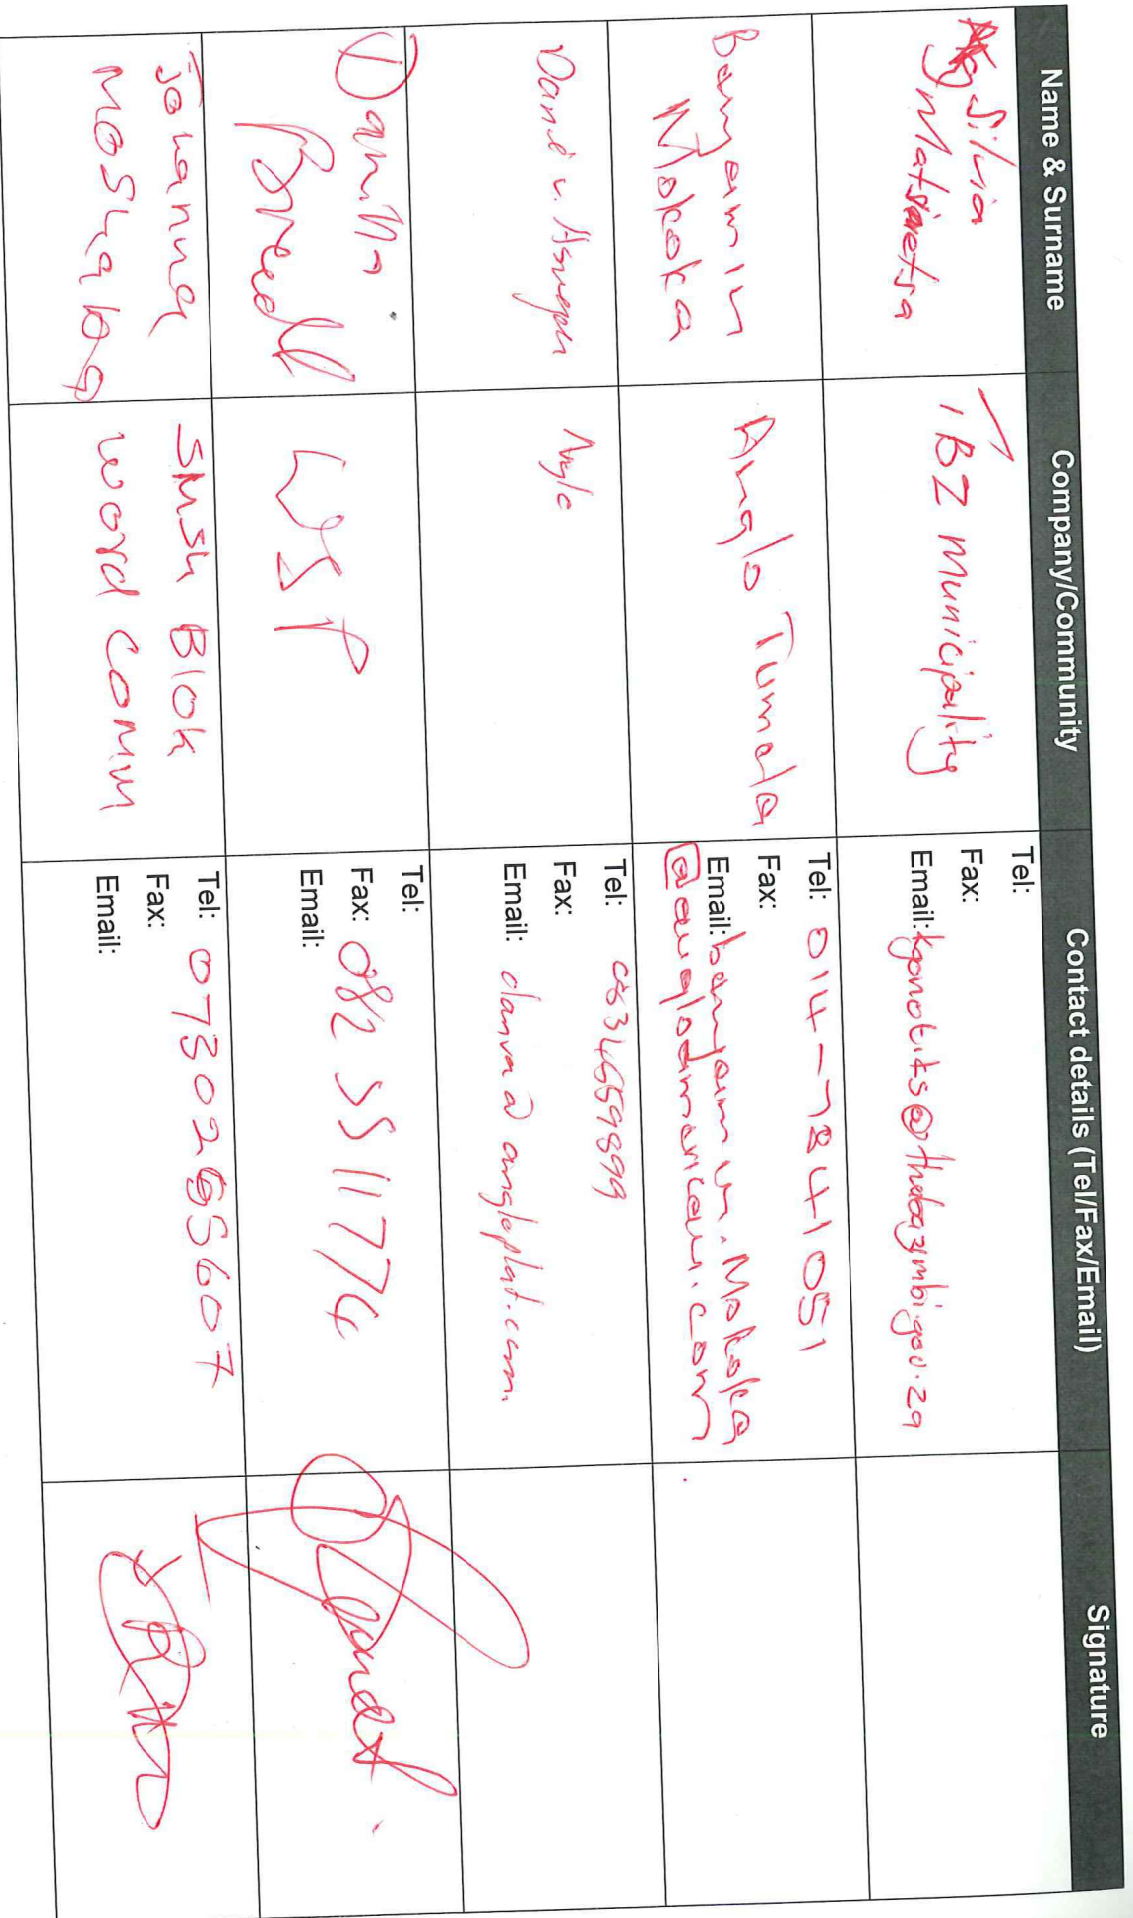 Name & Surname
Company/Community
Contact details (Tel/Fax/Email)
Signature
Silvia
TBZ Municipality
Tel:
Fax:
Email: kgonotits@thabazimbi.gov.za
Benjamin
Mokoka
Anglo Tumela
Tel: 014-7841051
Fax:
Email: benjamin.Mokoka
@angloamerican.com
Tel: 0834659899
Fax:
Email: danva@angloplat.com.
Danilla
Breedt
WSP
Tel:
Fax: 082 5511774
Email:
Johanna
Moshaba
SMSh Blok
word comm
Tel: 0730265607
Fax:
Email: